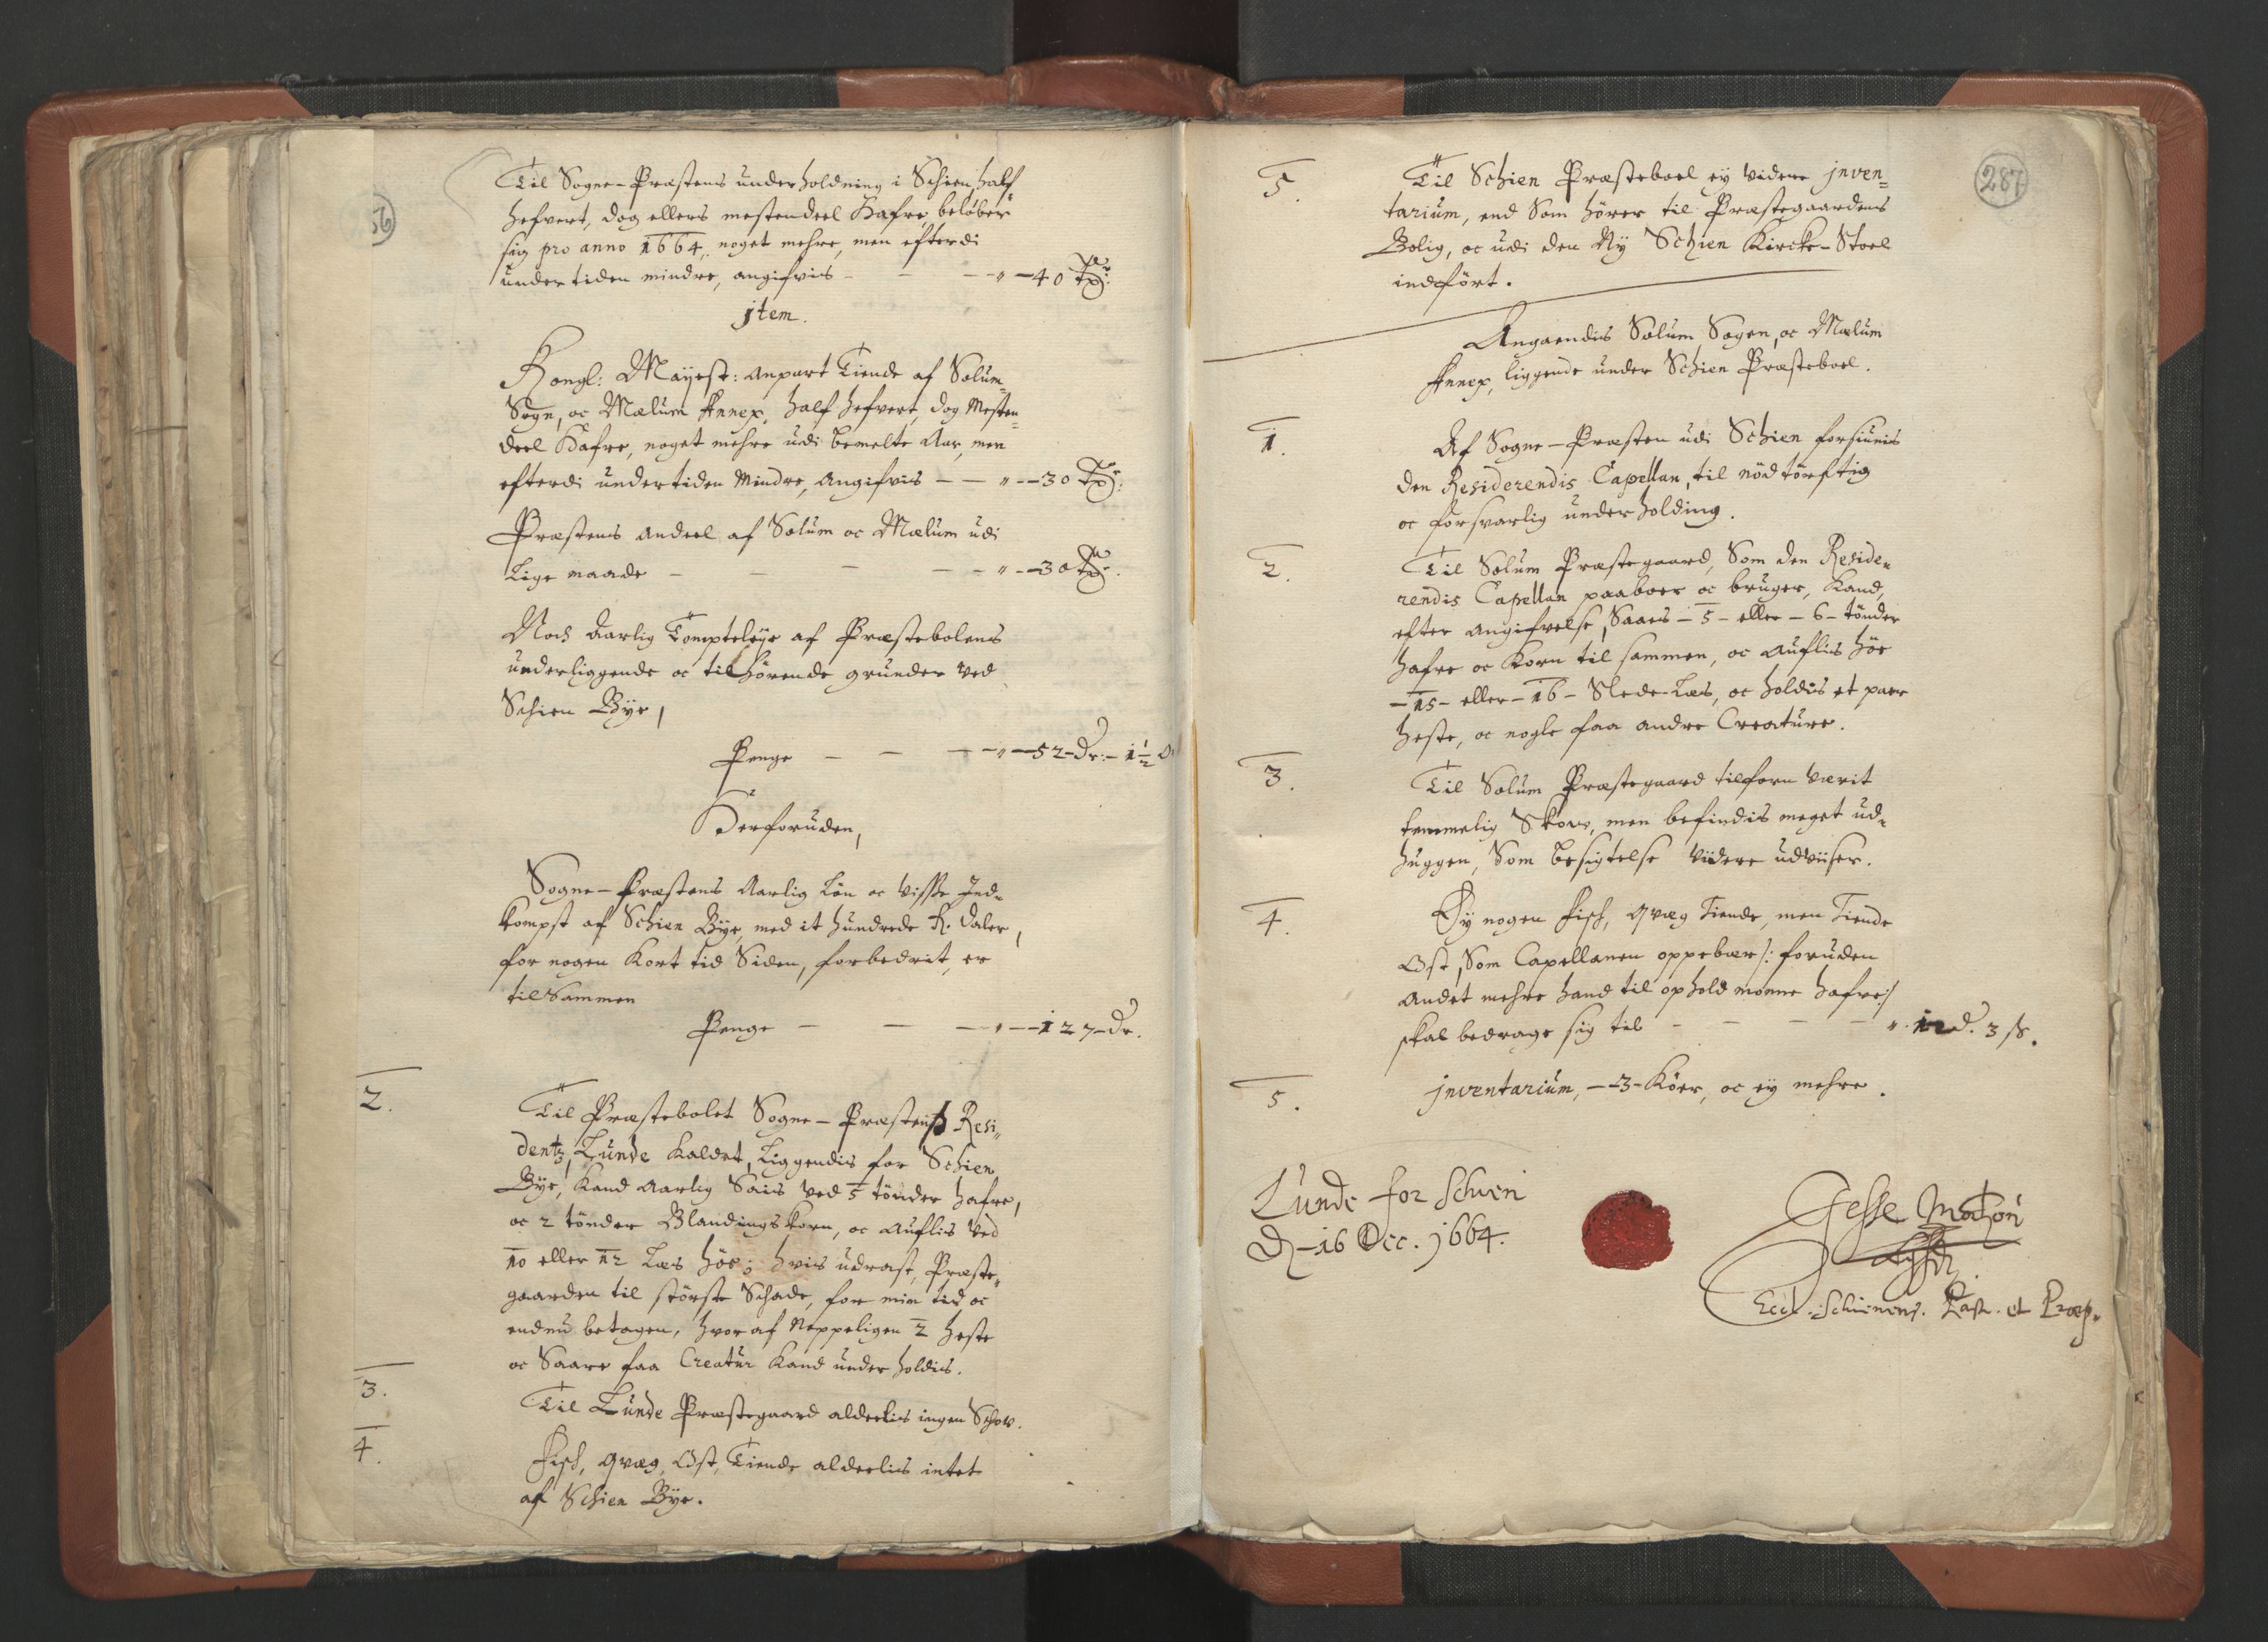 Til Sogne-Præstens underholdning i Schien, half
hefvert, dog ellers mestendeel Hafre, beløber
sig pro anno 1664, noget mehre, men efterdi
undertiden mindre, angifvis - - - " - 40 Tr:
jtem.
Kongl: Mayest: anpart Tiende af Solum
Sogn, oc Mælum Annex, half hefvert, dog Mesten=
deel Hafre, noget mehre udi bemelte Aar, men
efterdi undertiden Mindre, Angifvis - - " - 30 Tr:
Præstens andeel af Solum oc Mælum udi
Lige maade - - - - - " - 30 Tr:
Noch Aarlig Tompteleye af Præstebolens
underliggende oc tilhørende grunder ved
Schien Bye,
Penge - - - " - 52 - Dr: - 1½
Herforuden,
Sogne-Præstens Aarlig Løn oc Visse Ind=
kompst af Schien Bye, med it hundrede R. Daler,
for nogen Kort tid Siden, forbedrit, er
tilsammen
Penge - - - " - 127 - Dr.
2.
Til Præstebolet Sogne-Præstens Resi=
dentz, Lunde Kaldet, Liggendis for Schien
Bye, Kand Aarlig Saais ved 5 tønder hafre,
oc 2 tønder Blandingskorn, oc Auflis ved
10 eller 12 Læs høe; hvis udrast, Præste=
gaarden til største Schade, for min tid oc
endnu betagen, hvoraf Neppeligen 2 heste
oc Saare faa Creatur Kand underholdis.
3.
Til Lunde Præstegaard alderlis ingen Schow.
4.
Fisch, Qvæg, Ost, Tiende alderlis intet
af Schien Bye.
287
5.
Til Schien Præsteboel ey videre jnven=
tarium, end Som hører til Præstegaardens
Bolig, oc udi den Ny Schien Kircke-Stoel
indført.
Angaaendis Solum Sogen, oc Mælum
Annex, liggende under Schien Præsteboel.
1.
Af Sogne-Præsten udi Schien forsiunis
den Residerendis Capellan, til nødtørftig
oc forsvarlig underholding.
2.
Til Solum Præstegaard, Som den Reside=
rendis Capellan paaboer oc bruger, Kand,
efter Angifvelse, Saaes - 5 - eller - 6 - tønder
hafre oc Korn til sammen, oc Auflis høe
- 15 - eller - 16 - Slede-Læs, oc holdis et paer
heste, oc nogle faa andre Creature.
3.
Til Solum Præstegaard tilforn værit
temmelig Skow, men befindis meget ud=
huggen, Som besigtelse Viidere udviiser.
4.
Ey nogen Fisch, Qvæg Tiende, men Tiende
Ost, Som Capellanen oppebær /: foruden
Andet mehre hand til ophold monne hafve :/
skal bedrage sig til - - - - " 12 d. 3 ß.
5.
jnventarium, - 3 - Køer, oc ey mehre.
Lunde for Schien
D - 16 Dec. 1664.
Jesse
Eccl. Schienens. Past. et Præp.